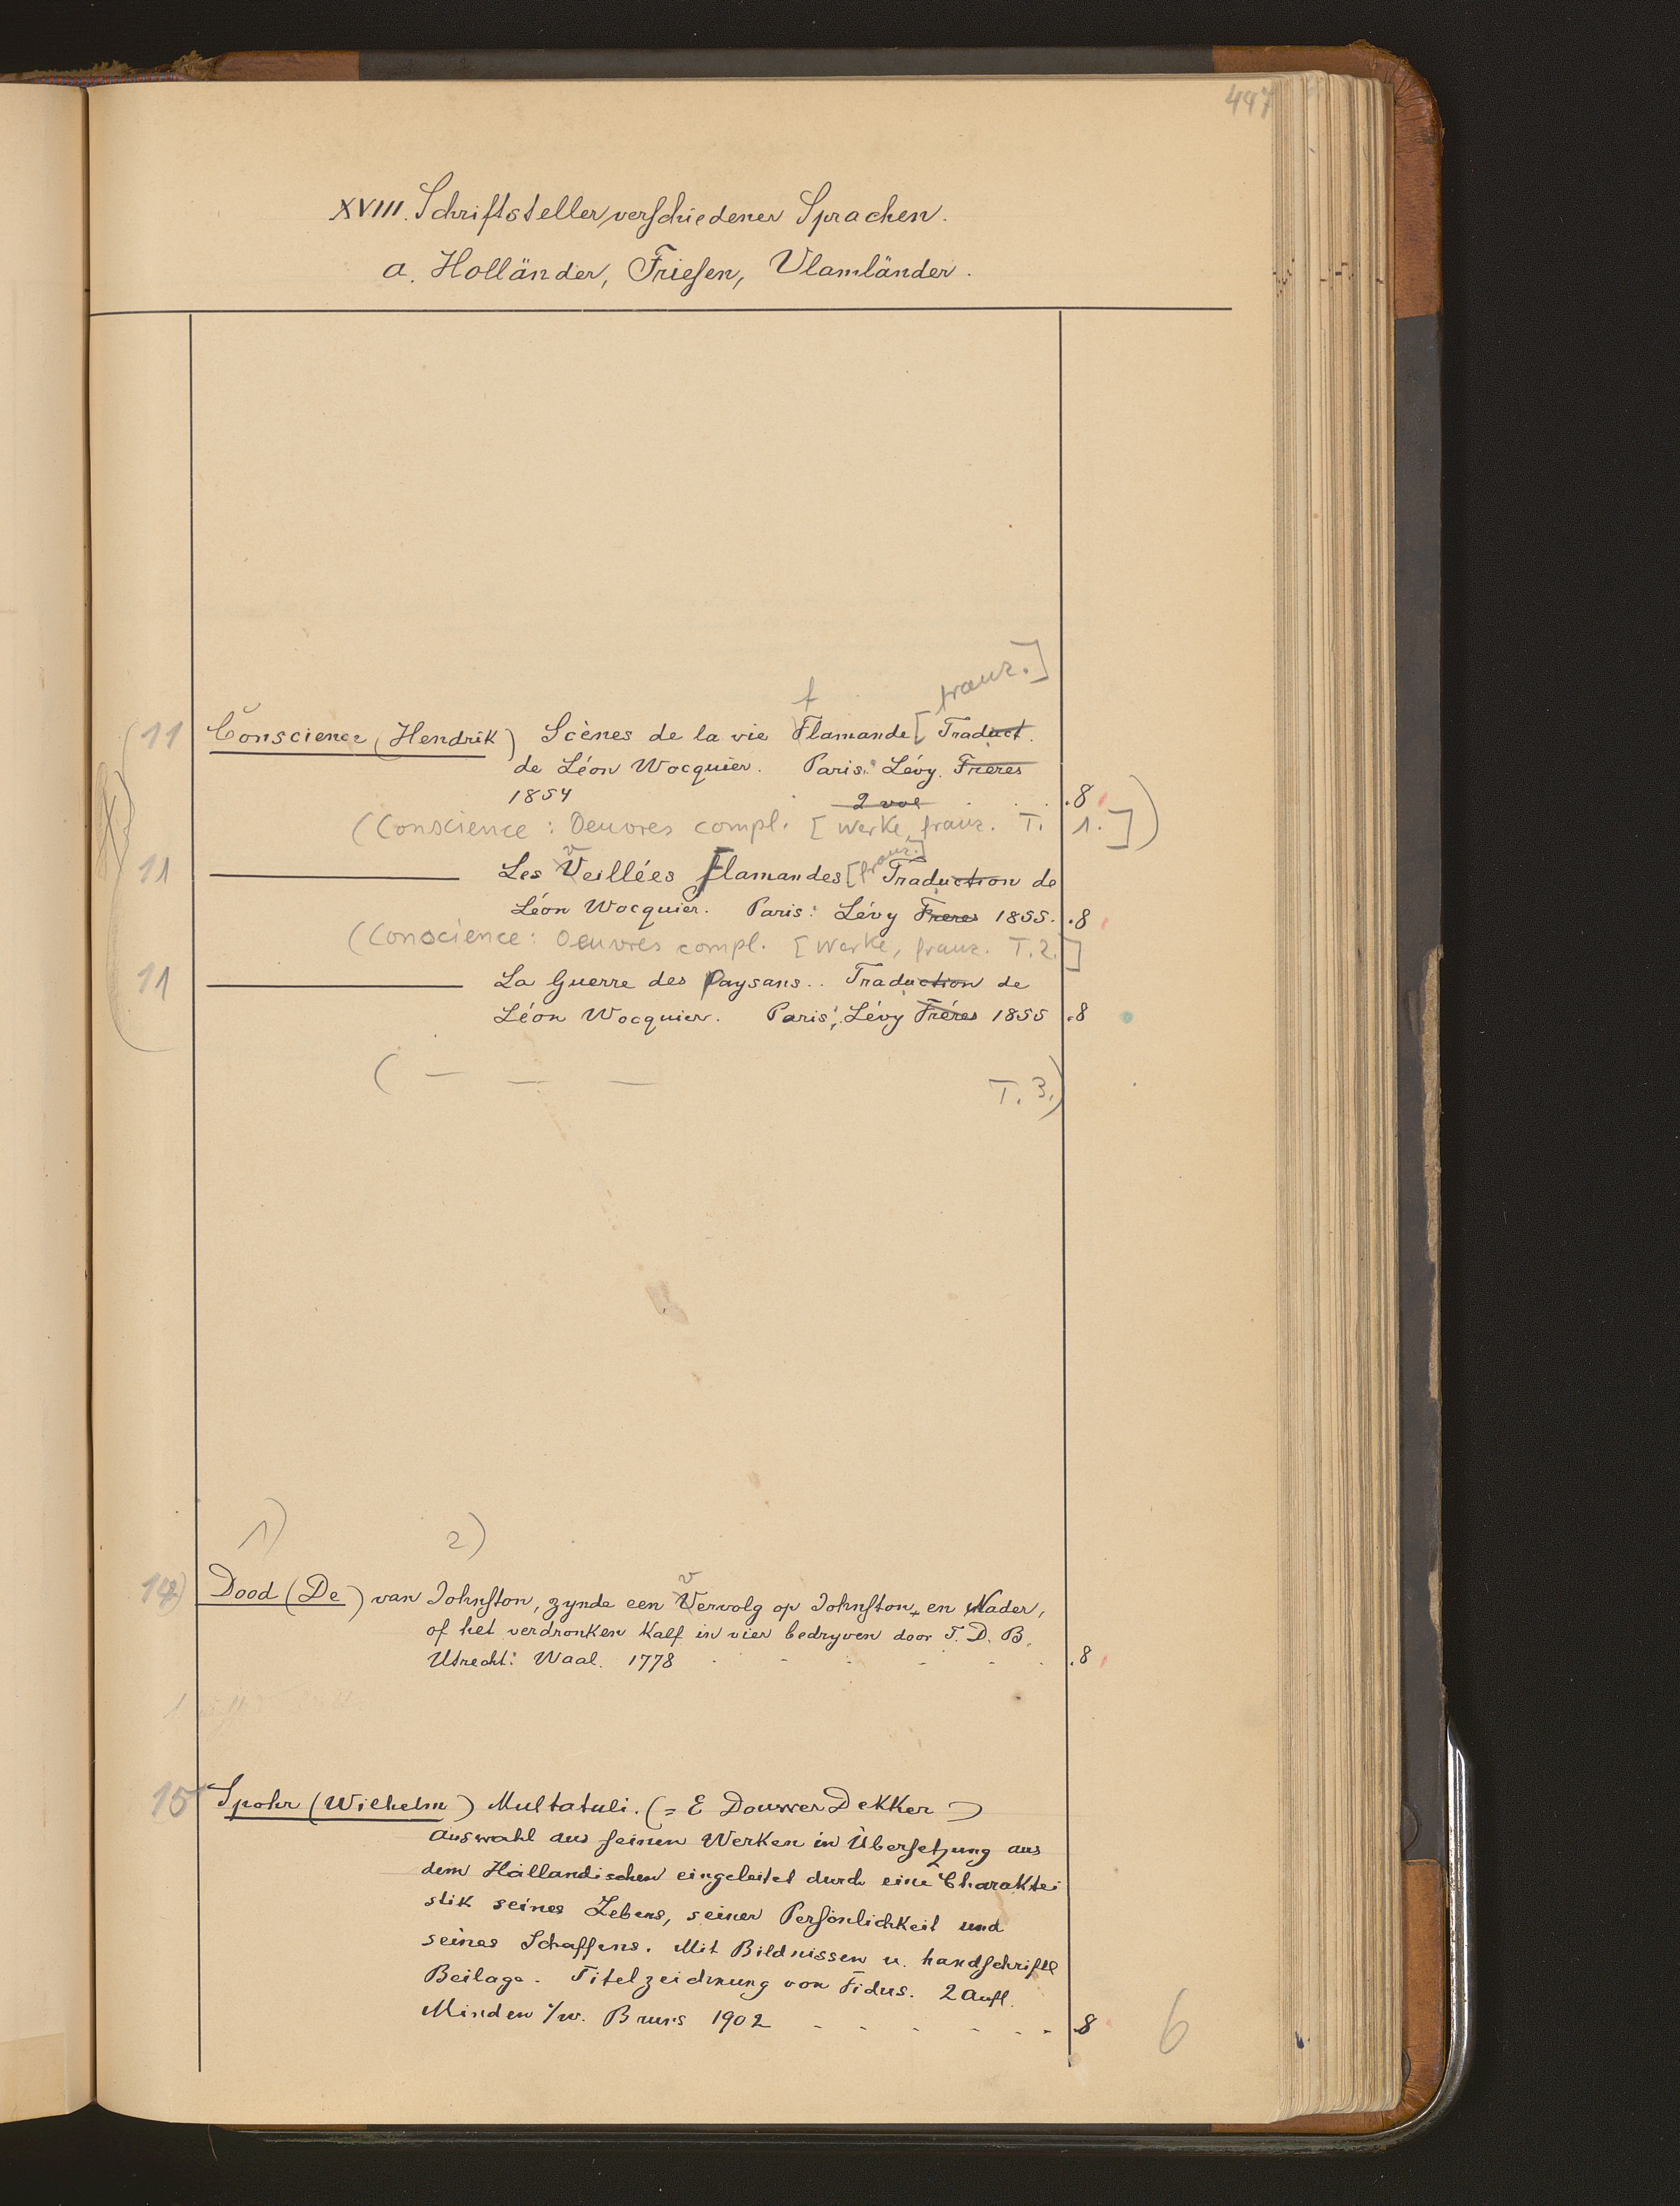 497
XVIII. Schriftsteller verschiedener Sprachen.
a. Holländer, Friesen, Vlamländer.
f franz.]
11 Conscience (Hendrik) Scènes de la vie Flamande [Traduct.
de Léon Wocquier. Paris: Lévy. Freres
1854 2 vol . . . 8
(Conscience: Oeuvres compl. [Werke, franz. T. 1.])
v franz.]
11 Les Veillées flamandes [Traduction de
Léon Wocquier. Paris: Lévy Freres 1855. .8
(Conscience: Oeuvres compl. [Werke, franz. T.2.]
11 La Guerre des Paysans.. Traduction de
Léon Wocquier. Paris: Lévy Fréres 1855 .8
( — — — T. 3.)
1) 2)
v
14) Dood (De) van Johnston, zynde een Vervolg op Johnston, en Nader,
of het verdronken Kalf in vier bedryven door T. D. B.
Utrecht: Waal. 1778 - - - - - . .8
15 Spohr (Wilhelm) Multatuli. (= E Douwer Dekker)
Auswahl aus seinen Werken in Übersetzung aus
dem Hollandischen eingeleitet durch eine Charaktei
stik seines Lebens, seiner Persönlichkeit und
seines Schaffens. Mit Bildnissen u. handschriftl
Beilage. Titelzeichnung von Fidus. 2 Aufl.
Minden i/w. Bruns 1902 - - - - - - 8
6